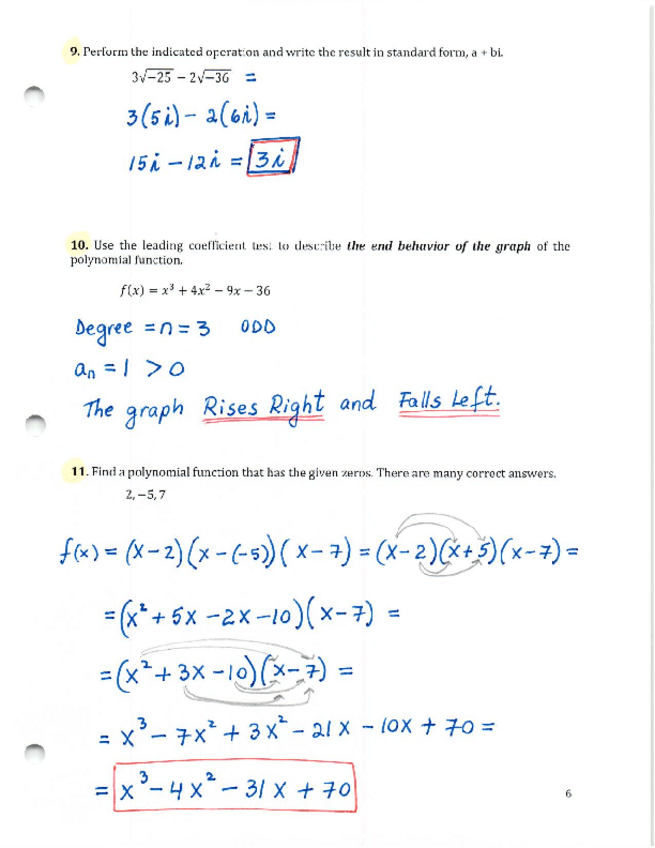 9. Perform the indicated operation and write the result in standard form, a + bi.
3√−25 − 2√−36 =
3(5i) − 2(6i) =
15i − 12i = 3i
10. Use the leading coefficient test to describe the end behavior of the graph of the
polynomial function.
f(x) = x³ + 4x² − 9x − 36
Degree = n = 3 ODD
aₙ = 1 > 0
The graph Rises Right and Falls Left.
11. Find a polynomial function that has the given zeros. There are many correct answers.
2, −5, 7
f(x) = (x − 2)(x − (−5))(x − 7) = (x − 2)(x + 5)(x − 7) =
= (x² + 5x − 2x − 10)(x − 7) =
= (x² + 3x − 10)(x − 7) =
= x³ − 7x² + 3x² − 21x − 10x + 70 =
= x³ − 4x² − 31x + 70
6